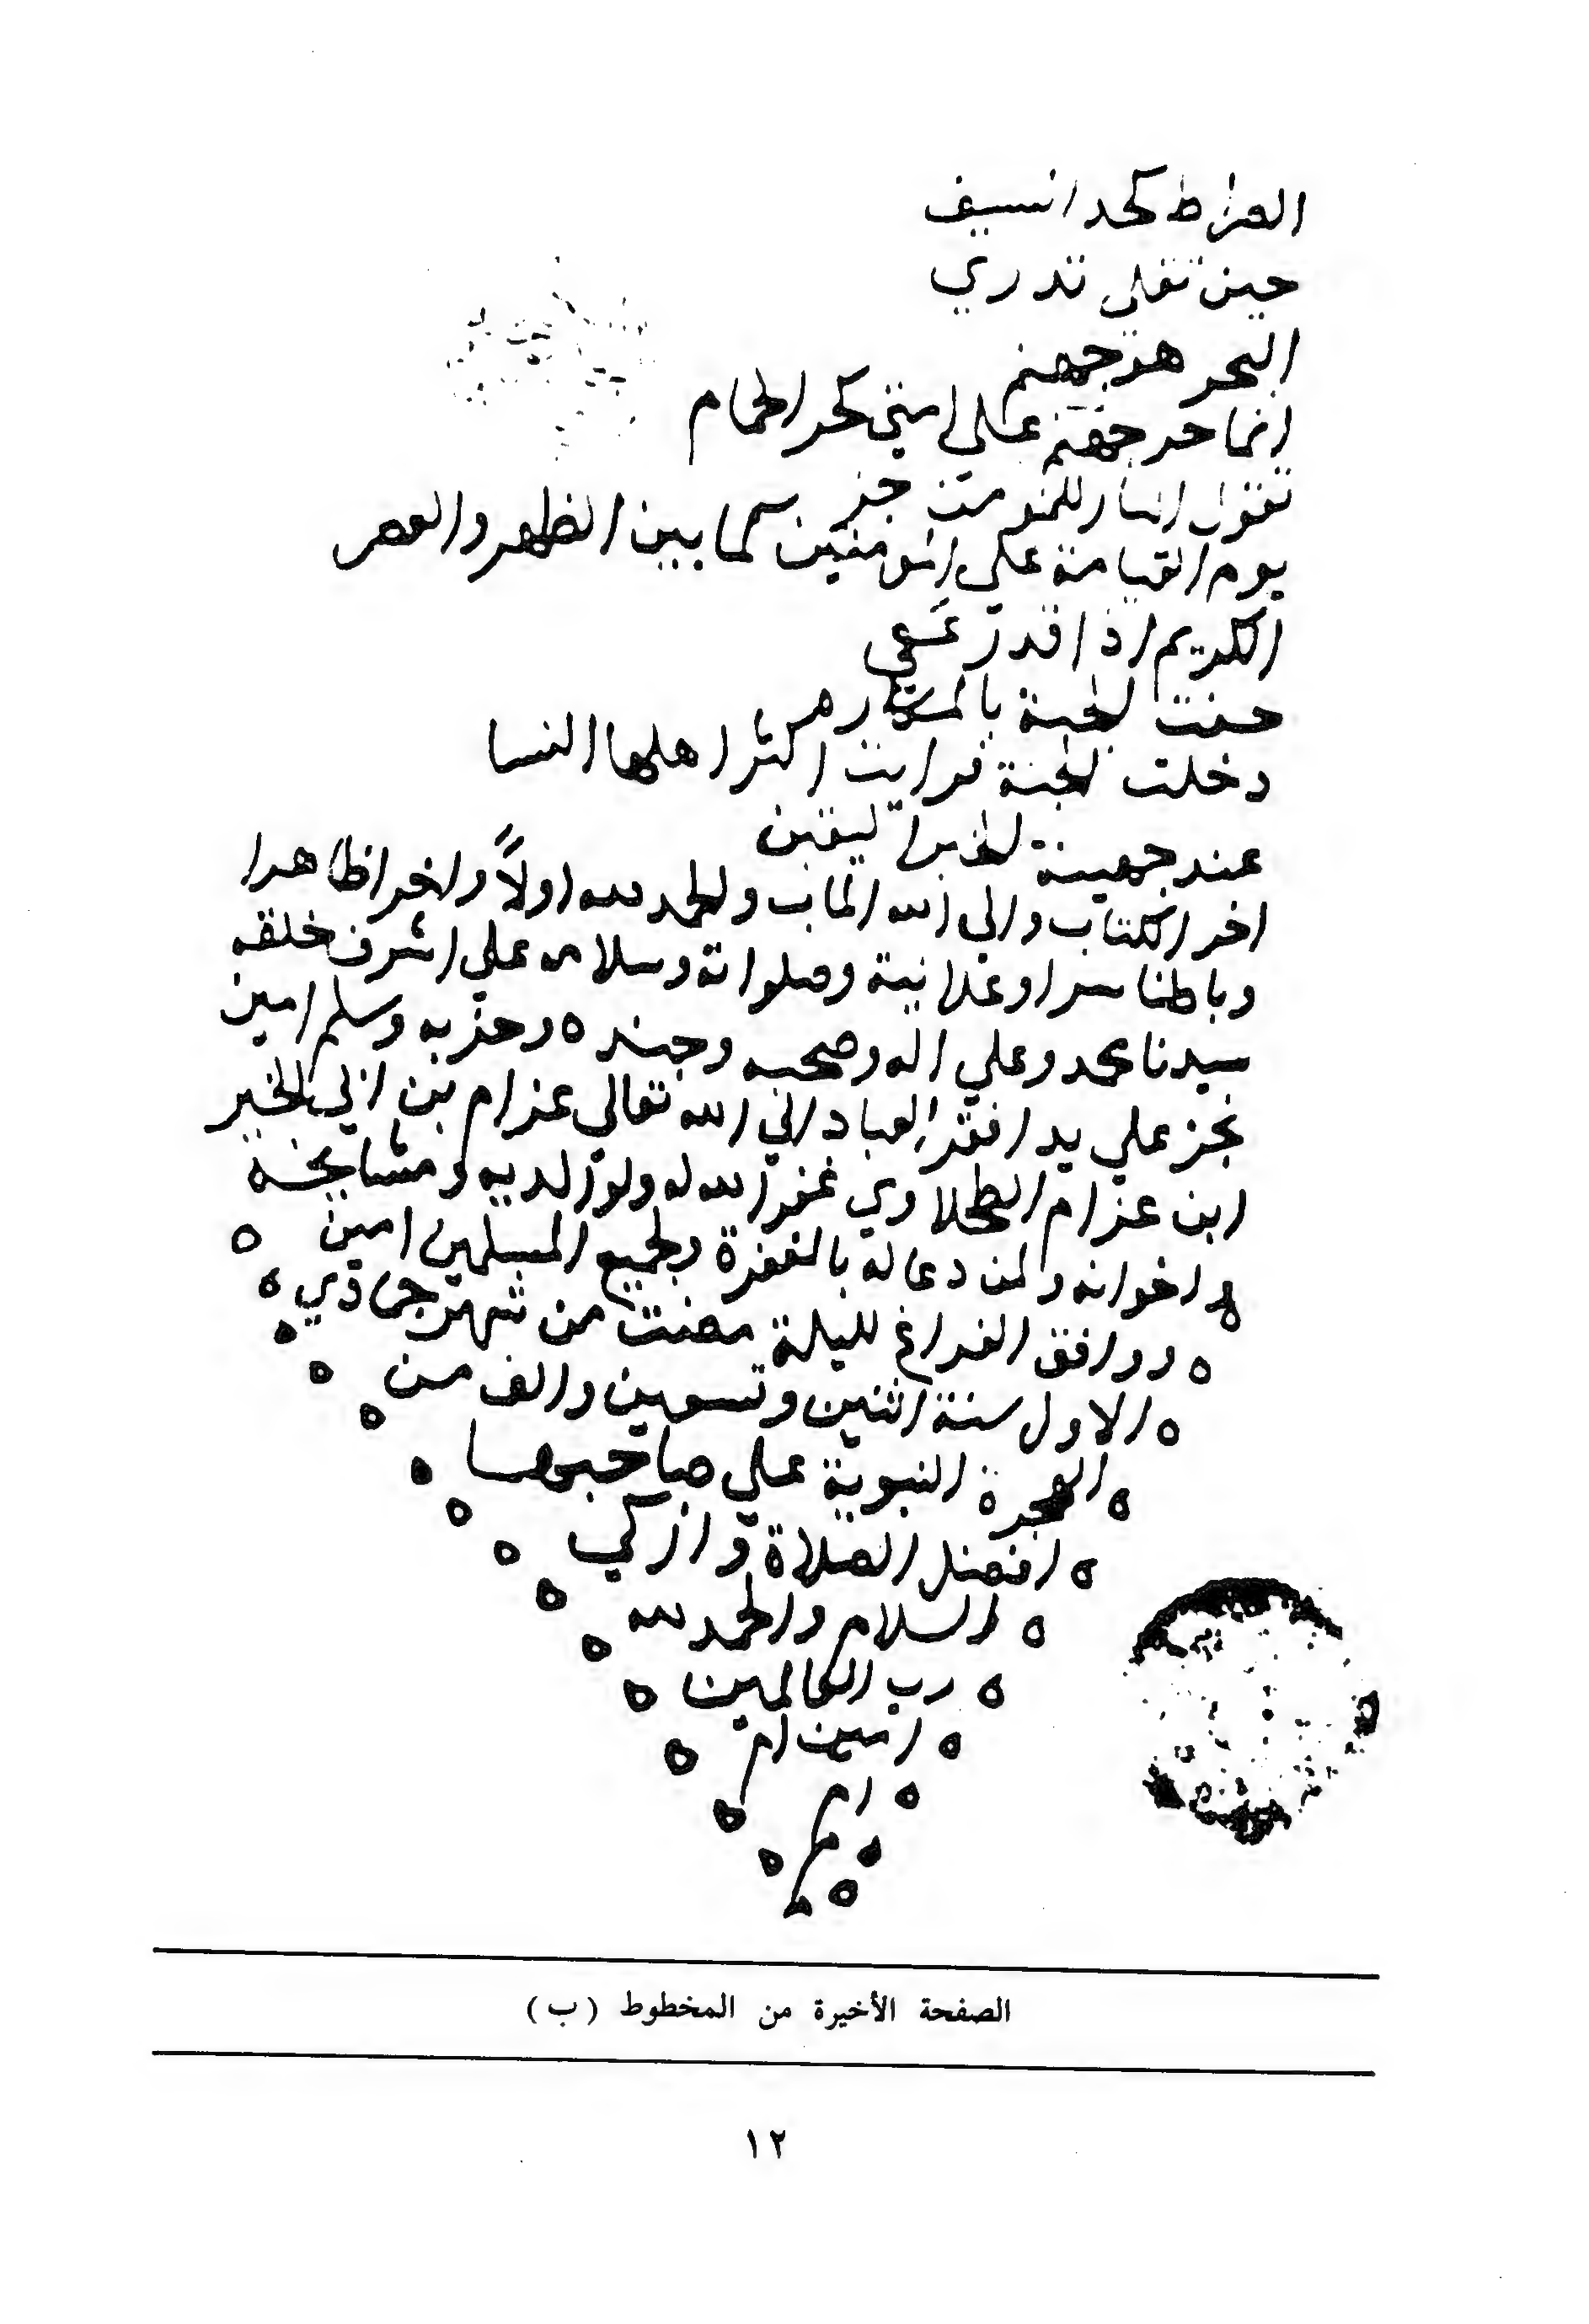 الصراط كحد السيف
حين تقلى تدري
البحر هو جهنم
انما حر جهنم علي امتي كحر الحمام
تقول النار للمومن جز
يوم القيامة علي المومنين كما بين الظهر والعصر
الكريم اذا قدر عفى
حفت الجنة بالمكاره
دخلت الجنة فرايت اكثر اهلها النسا
عند جهينة الخبر اليقين
اخر الكتاب والي الله الماب والحمد لله اولاً واخرا ظاهرا
وباطنا سرا وعلانية وصلواته وسلامه علي اشرف خلقه
سيدنا محمد وعلي اله وصحبه وجنده وحزبه وسلم امين
نجز علي يد افقر العباد الي الله تعالي عزام بن ابي الخير
ابن عزام الطحلاوي غفر الله له ولوالديه ومشايخه
واخوانه ولمن دعا له بالمغفرة ولجميع المسلمين امين
ووافق الفراغ لليلة مضت من شهر جمادي
الاول سنة اثنين وتسعين والف من
الهجرة النبوية علي صاحبها
افضل الصلاة وازكي
السلام والحمد لله
رب العالمين
امين ام
ام
م
الصفحة الأخيرة من المخطوط (ب)
١٢